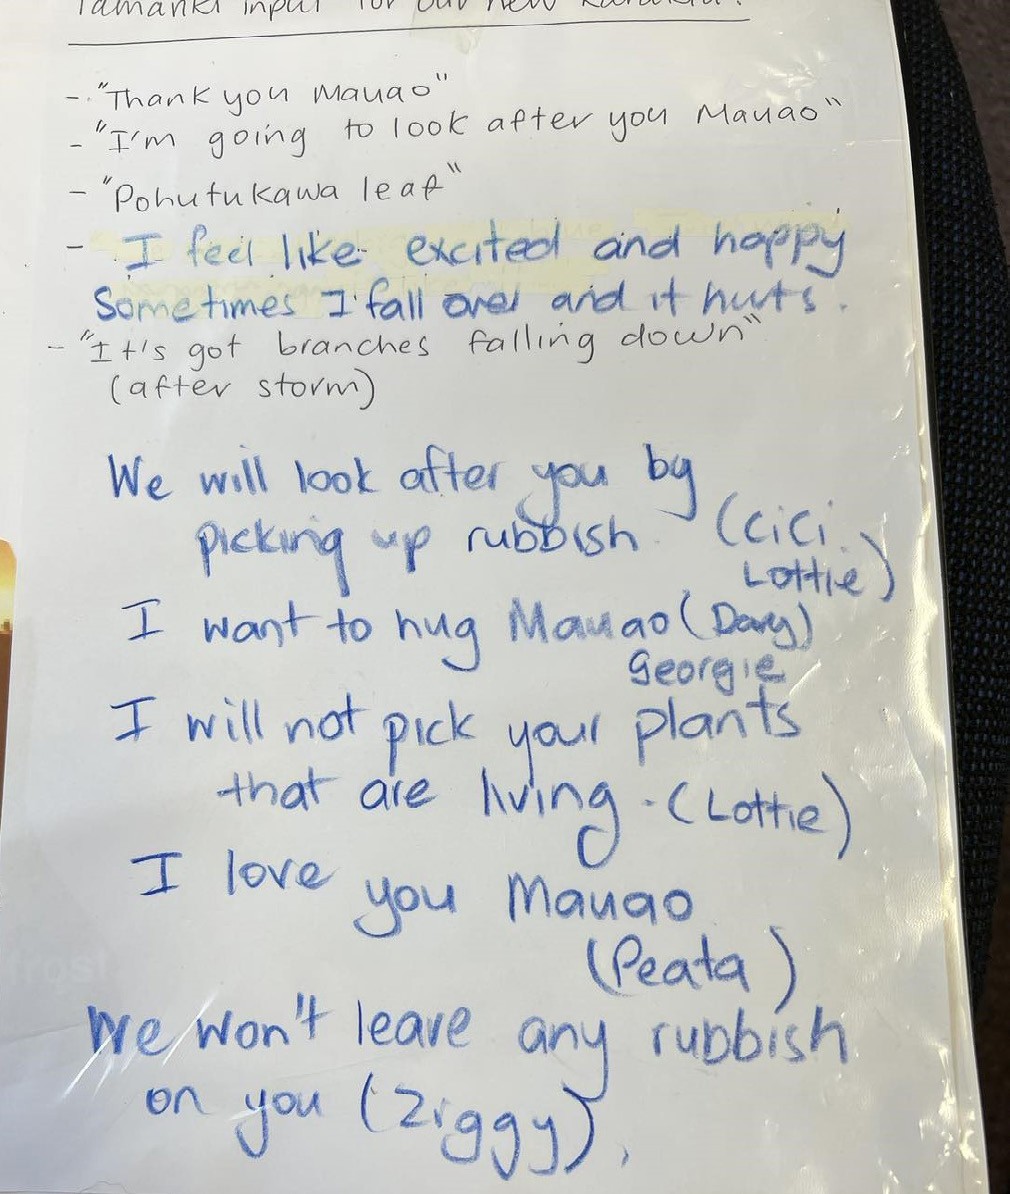 Tamariki input for our new karakia:
-"Thank you Mauao"
- "I'm going to look after you Mauao"
- "Pohutukawa leaf"
- I feel like excited and happy
Sometimes I fall over and it hurts.
- "It's got branches falling down"
(after storm)
We will look after you by
picking up rubbish (CiCi
Lottie)
I want to hug Mauao (Davy)
Georgie
I will not pick your plants
that are living. (Lottie)
I love you Mauao
(Peata)
We won't leave any rubbish
on you (Ziggy).